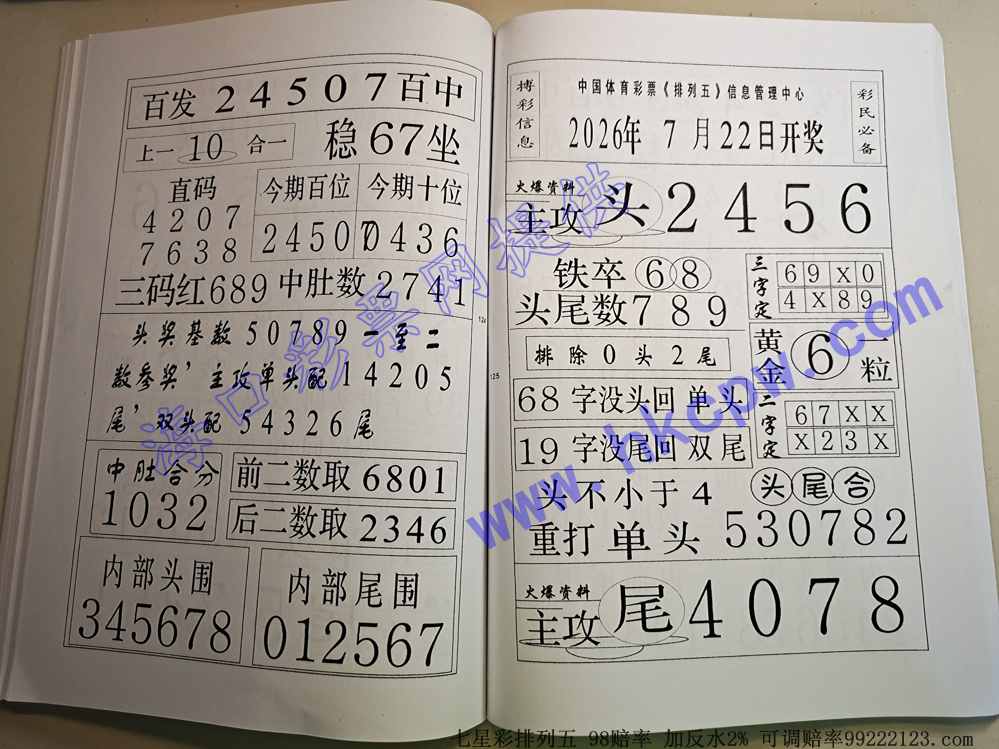 百发 24507 百中
上一 10 合一
稳 67 坐
直码
4207
7638
今期百位
24507
今期十位
0436
三码红 689 中肚数 2741
头奖基数 50789 一至二
数参奖’主攻单头配 14205
尾’双头配 54326 尾
中肚合分
1032
前二数取 6801
后二数取 2346
内部头围
345678
内部尾围
012567
124
125
搏彩信息
中国体育彩票《排列五》信息管理中心
2026年 7月22日开奖
彩民必备
火爆资料
主攻 头 2456
铁卒 6 8
头尾数 789
三字定
6 9 X 0
4 X 8 9
排除 0 头 2 尾
黄金 6 一粒
68 字没头回 单头
19 字没尾回 双尾
二字定
6 7 X X
X 2 3 X
头不小于 4
头尾合
重打 单头 530782
火爆资料
主攻 尾 4078
海口彩票网提供 www.hkcpw.com
七星彩排列五 98赔率 加反水2% 可调赔率99222123.com